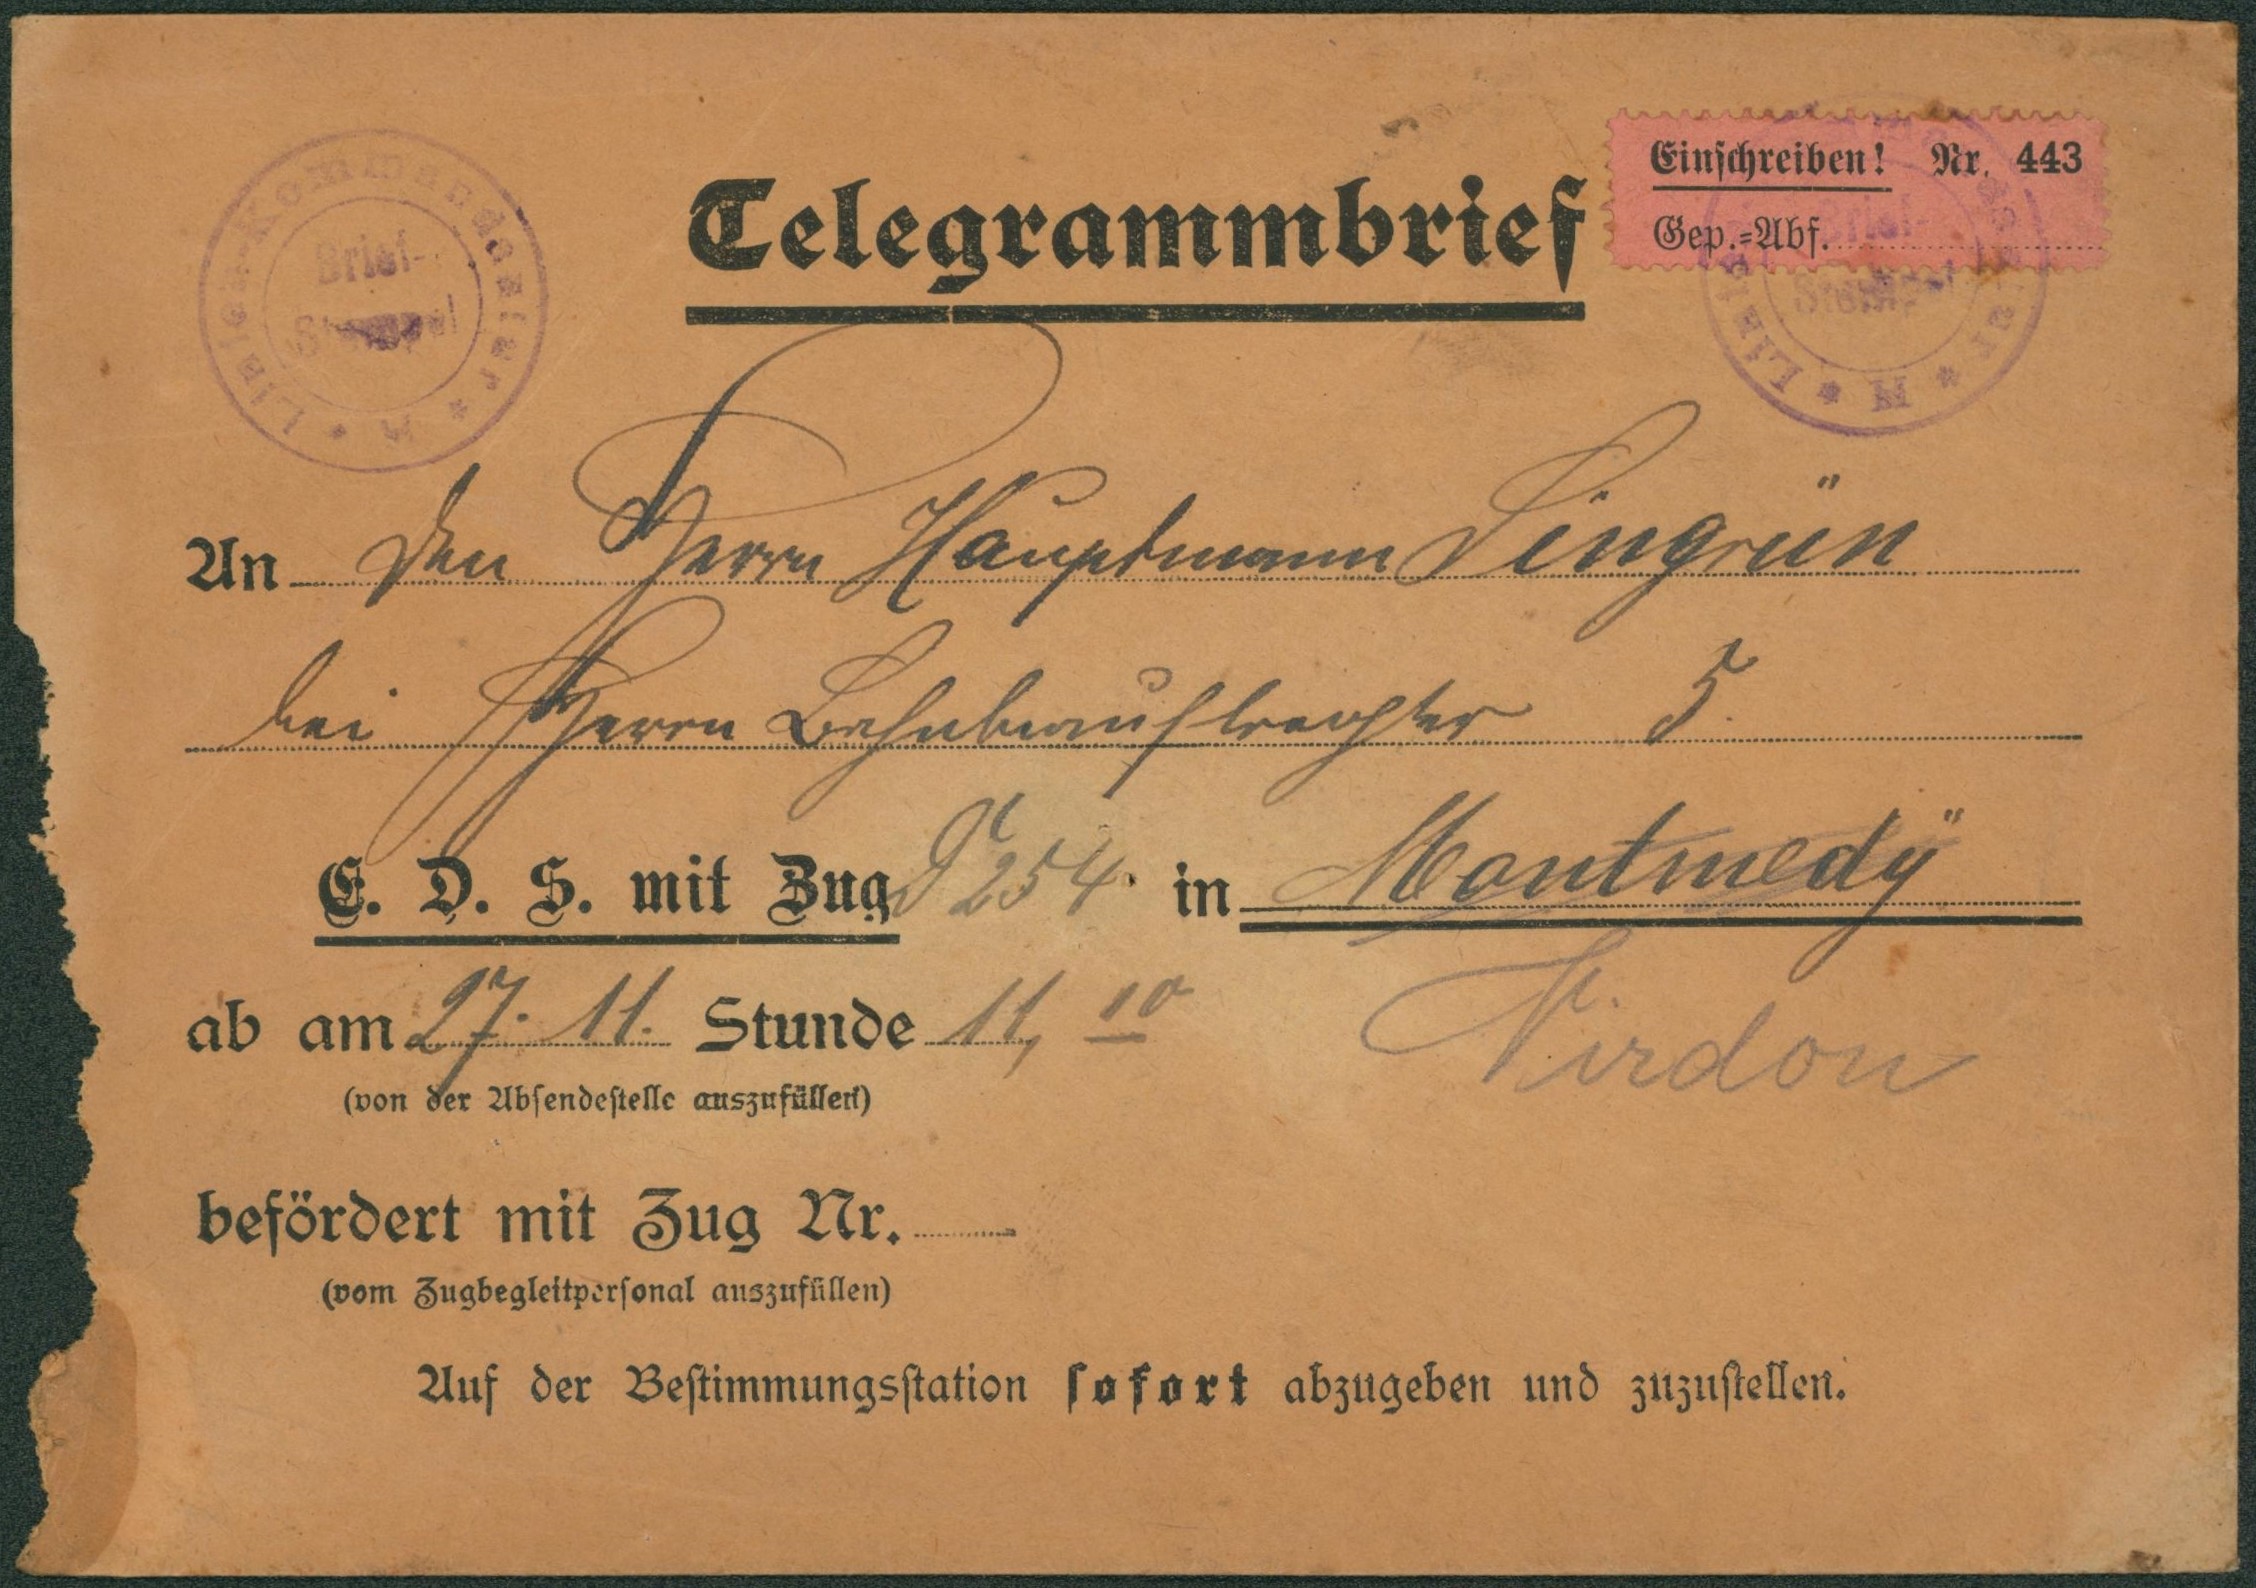 Linien-Kommandantur * M *
Brief-
Stempel
Telegrammbrief
Einschreiben! Nr. 443
Gep.-Abf.
Linien-Kommandantur * M *
Brief-
Stempel
An den Herrn Hauptmann Lingrün
bei Herrn Bahnbeauftragter 5.
E. D. S. mit Zug 254 in Montmedÿ
ab am 27. 11. Stunde 11,10
Virdon
(von der Absendestelle auszufüllen)
befördert mit Zug Nr.
(vom Zugbegleitpersonal auszufüllen)
Auf der Bestimmungsstation sofort abzugeben und zuzustellen.